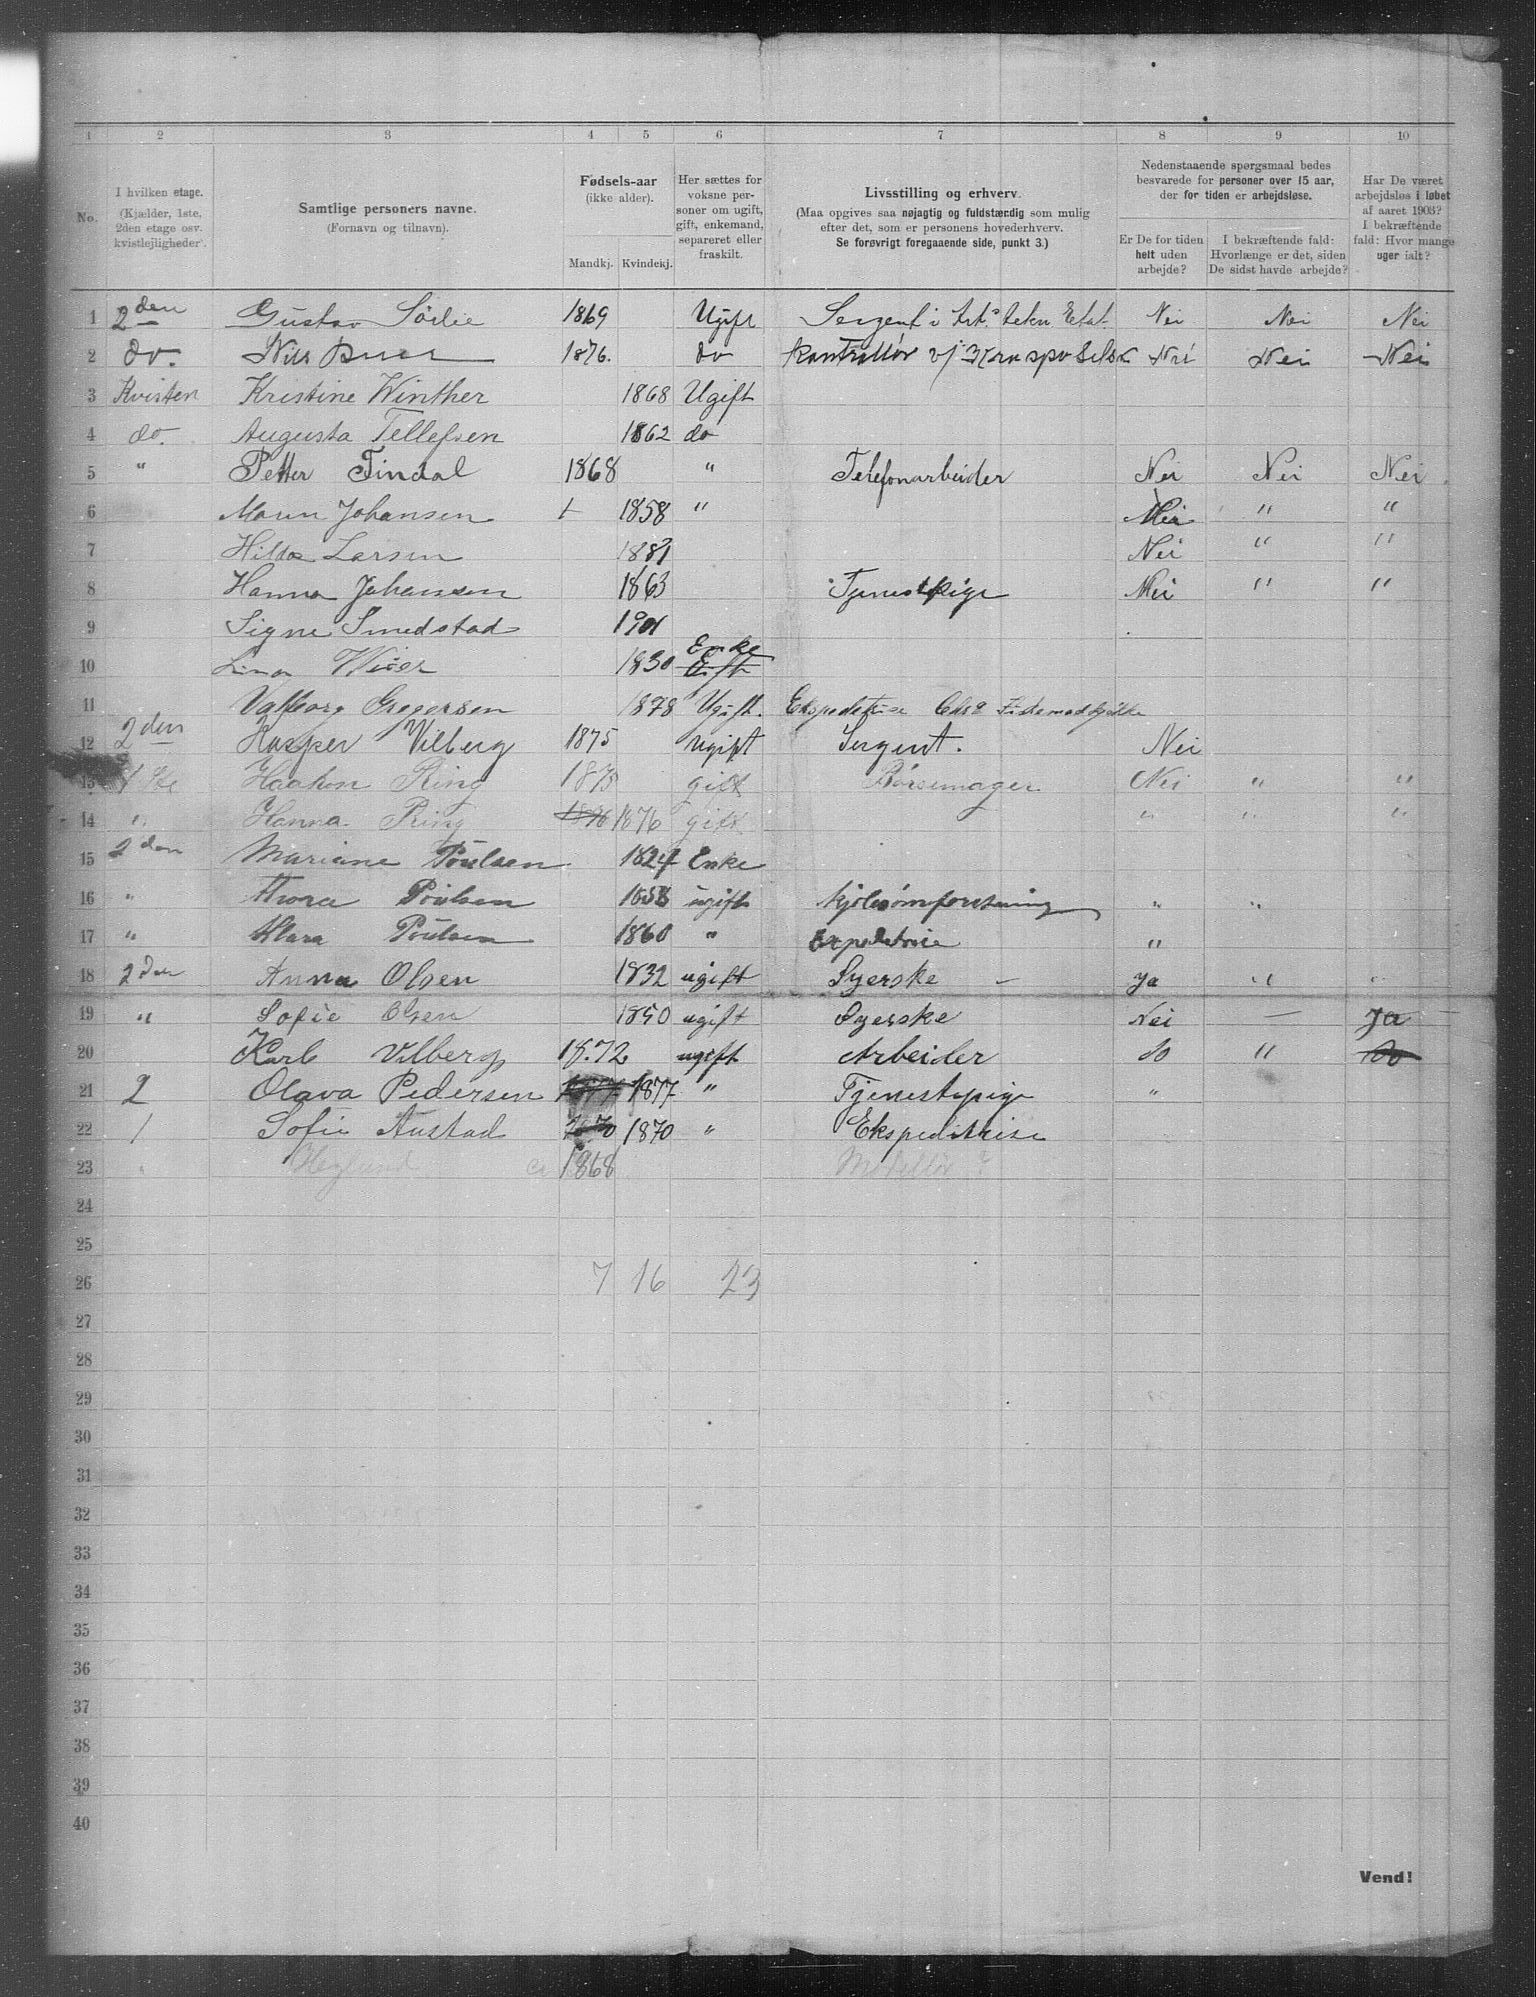 1 2 3 4 5 6 7 8 9 10
No.
I hvilken etage. (Kjælder, 1ste, 2den etage osv. kvistlejligheder).
Samtlige personers navne. (Fornavn og tilnavn).
Fødsels-aar (ikke alder).
Mandkj. Kvindekj.
Her sættes for voksne personer om ugift, gift, enkemand, separeret eller fraskilt.
Livsstilling og erhverv.
(Maa opgives saa nøjagtig og fuldstændig som mulig efter det, som er personens hovederhverv.
Se forøvrigt foregaaende side, punkt 3.)
Nedenstaaende spørgsmaal bedes besvarede for personer over 15 aar, der for tiden er arbejdsløse.
Er De for tiden helt uden arbejde?
I bekræftende fald: Hvorlænge er det, siden De sidst havde arbejde?
Har De været arbejdsløs i løbet af aaret 1903? I bekræftende fald: Hvor mange uger ialt?
1 2den Gustav Södlie 1869 Ugift Sergent i Nei Nei Nei
2 do. Nils 1876. do Kontrollör v/ Nei Nei Nei
3 Kvisten Kristine Winther 1868 Ugift
4 do. Augusta Tellefsen 1862 do
5 " Petter Tindal 1868 " Telefonarbeider Nei Nei Nei
6 Maren Johansen 1858 " Nei " "
7 Hilda Larsen 1881 Nei " "
8 Hanna Johansen 1863 Tjenestpige Nei " "
9 Signe Smedstad 1901
10 Lina 1830 Enke Gift
11 Valborg Gregersen 1878 Ugift. Ekspeditrise
12 2den Kasper Vilberg 1875 Ugift Sergent. Nei
13 1ste Haakon Ring 1873 gift Børsemager Nei " "
14 " Hanna Ring 1876 1876 gift " " "
15 2den Mariane Poulsen 1824 Enke
16 " Thora Poulsen 1858 ugift Kjolesømforretning " "
17 " Klara Poulsen 1860 " Expeditrice "
18 2den Anna Olsen 1832 ugift Syerske - Ja " "
19 " Sofie Olsen 1850 ugift Syerske Nei - Ja
20 Karl Vilberg 1872 ugift Arbeider do " do
21 2 Olava Pedersen 1877 1877 " Tjenestepige "
22 1 Sofie Austad 1870 1870 " Ekspeditrise
23 " Heglund ca 1868
24
25
26 7 16 23
27
28
29
30
31
32
33
34
35
36
37
38
39
40
Vend!